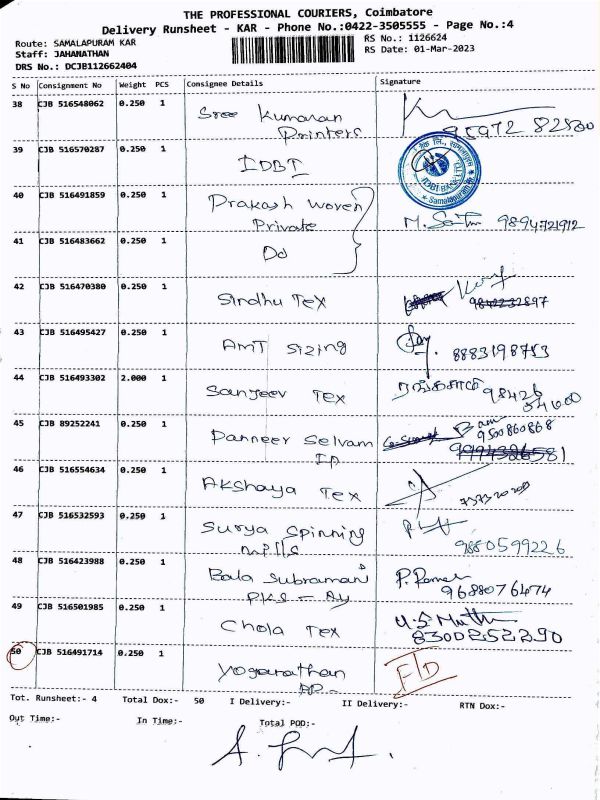 THE PROFESSIONAL COURIERS, Coimbatore
Delivery Runsheet - KAR - Phone No.:0422-3505555 - Page No.:4
Route: SAMALAPURAM KAR
RS No.: 1126624
Staff: JAHANATHAN
RS Date: 01-Mar-2023
DRS No.: DCJB112662404
S No Consignment No Weight PCS Consignee Details Signature
38 CJB 516548062 0.250 1 Sree Kumaran
Printers 95972 82500
39 CJB 516570287 0.250 1 IDBI
IDBI BANK LTD
Samalapuram
40 CJB 516491859 0.250 1 Prakash Woven
Private M. 9894721912
41 CJB 516483662 0.250 1 Do
42 CJB 516470380 0.250 1 Sindhu Tex 9842232897
43 CJB 516495427 0.250 1 AMT Sizing 8883198753
44 CJB 516493302 2.000 1 Sanjeev Tex 98426
45 CJB 89252241 0.250 1 Panneer Selvam 9500860868
IP
46 CJB 516554634 0.250 1 Akshaya Tex
47 CJB 516532593 0.250 1 Surya Spinning
Mills 9880599226
48 CJB 516423988 0.250 1 Bala Subramani P.
PKS - Ay 9688076474
49 CJB 516501985 0.250 1 Chola Tex
8300252290
50 CJB 516491714 0.250 1 Yoganathan F/D
Tot. Runsheet:- 4 Total Dox:- 50 I Delivery:- II Delivery:- RTN Dox:-
Out Time:- In Time:- Total POD:-